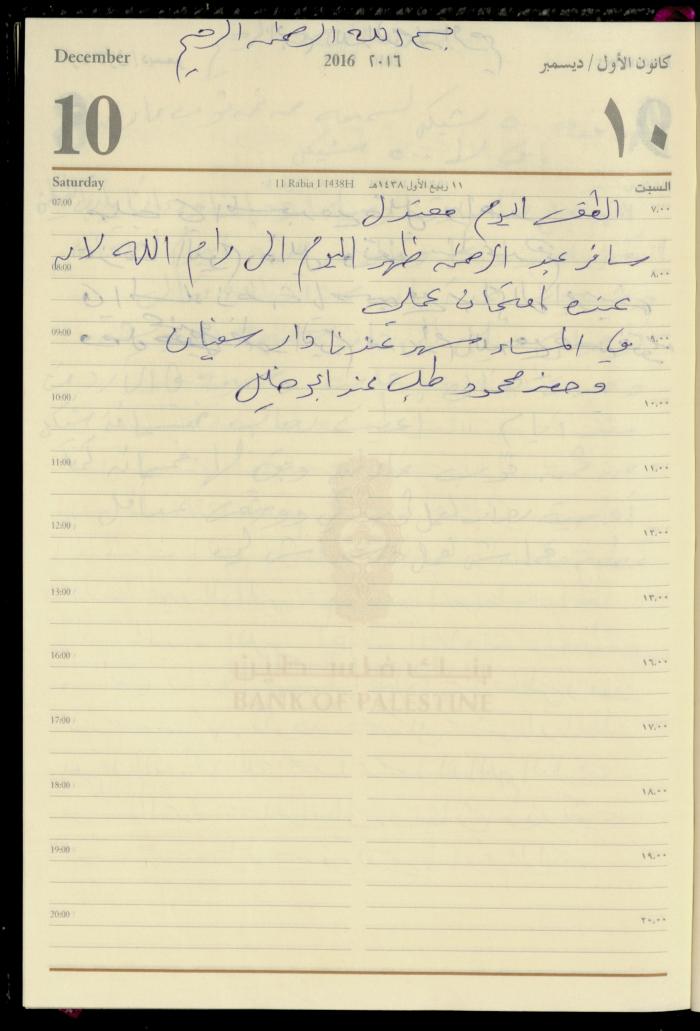 بسم الله الرحمن الرحيم
December
2016 ٢٠١٦
كانون الأول / ديسمبر
10
١٠
Saturday
11 Rabia I 1438H
١١ ربيع الأول ١٤٣٨هـ
السبت
07:00 ٧,٠٠
الطقس اليوم معتدل
سافر عبد الرحمن ظهر اليوم الى رام الله لان
08:00 ٨,٠٠
عنده امتحان عملي
09:00 ٩,٠٠
في المساء سهر عندنا دار سفيان
وحضر محمود طلب عند ابو خليل
10:00 ١٠,٠٠
11:00 ١١,٠٠
12:00 ١٢,٠٠
13:00 ١٣,٠٠
16:00 ١٦,٠٠
بنك فلسطين
BANK OF PALESTINE
17:00 ١٧,٠٠
18:00 ١٨,٠٠
19:00 ١٩,٠٠
20:00 ٢٠,٠٠